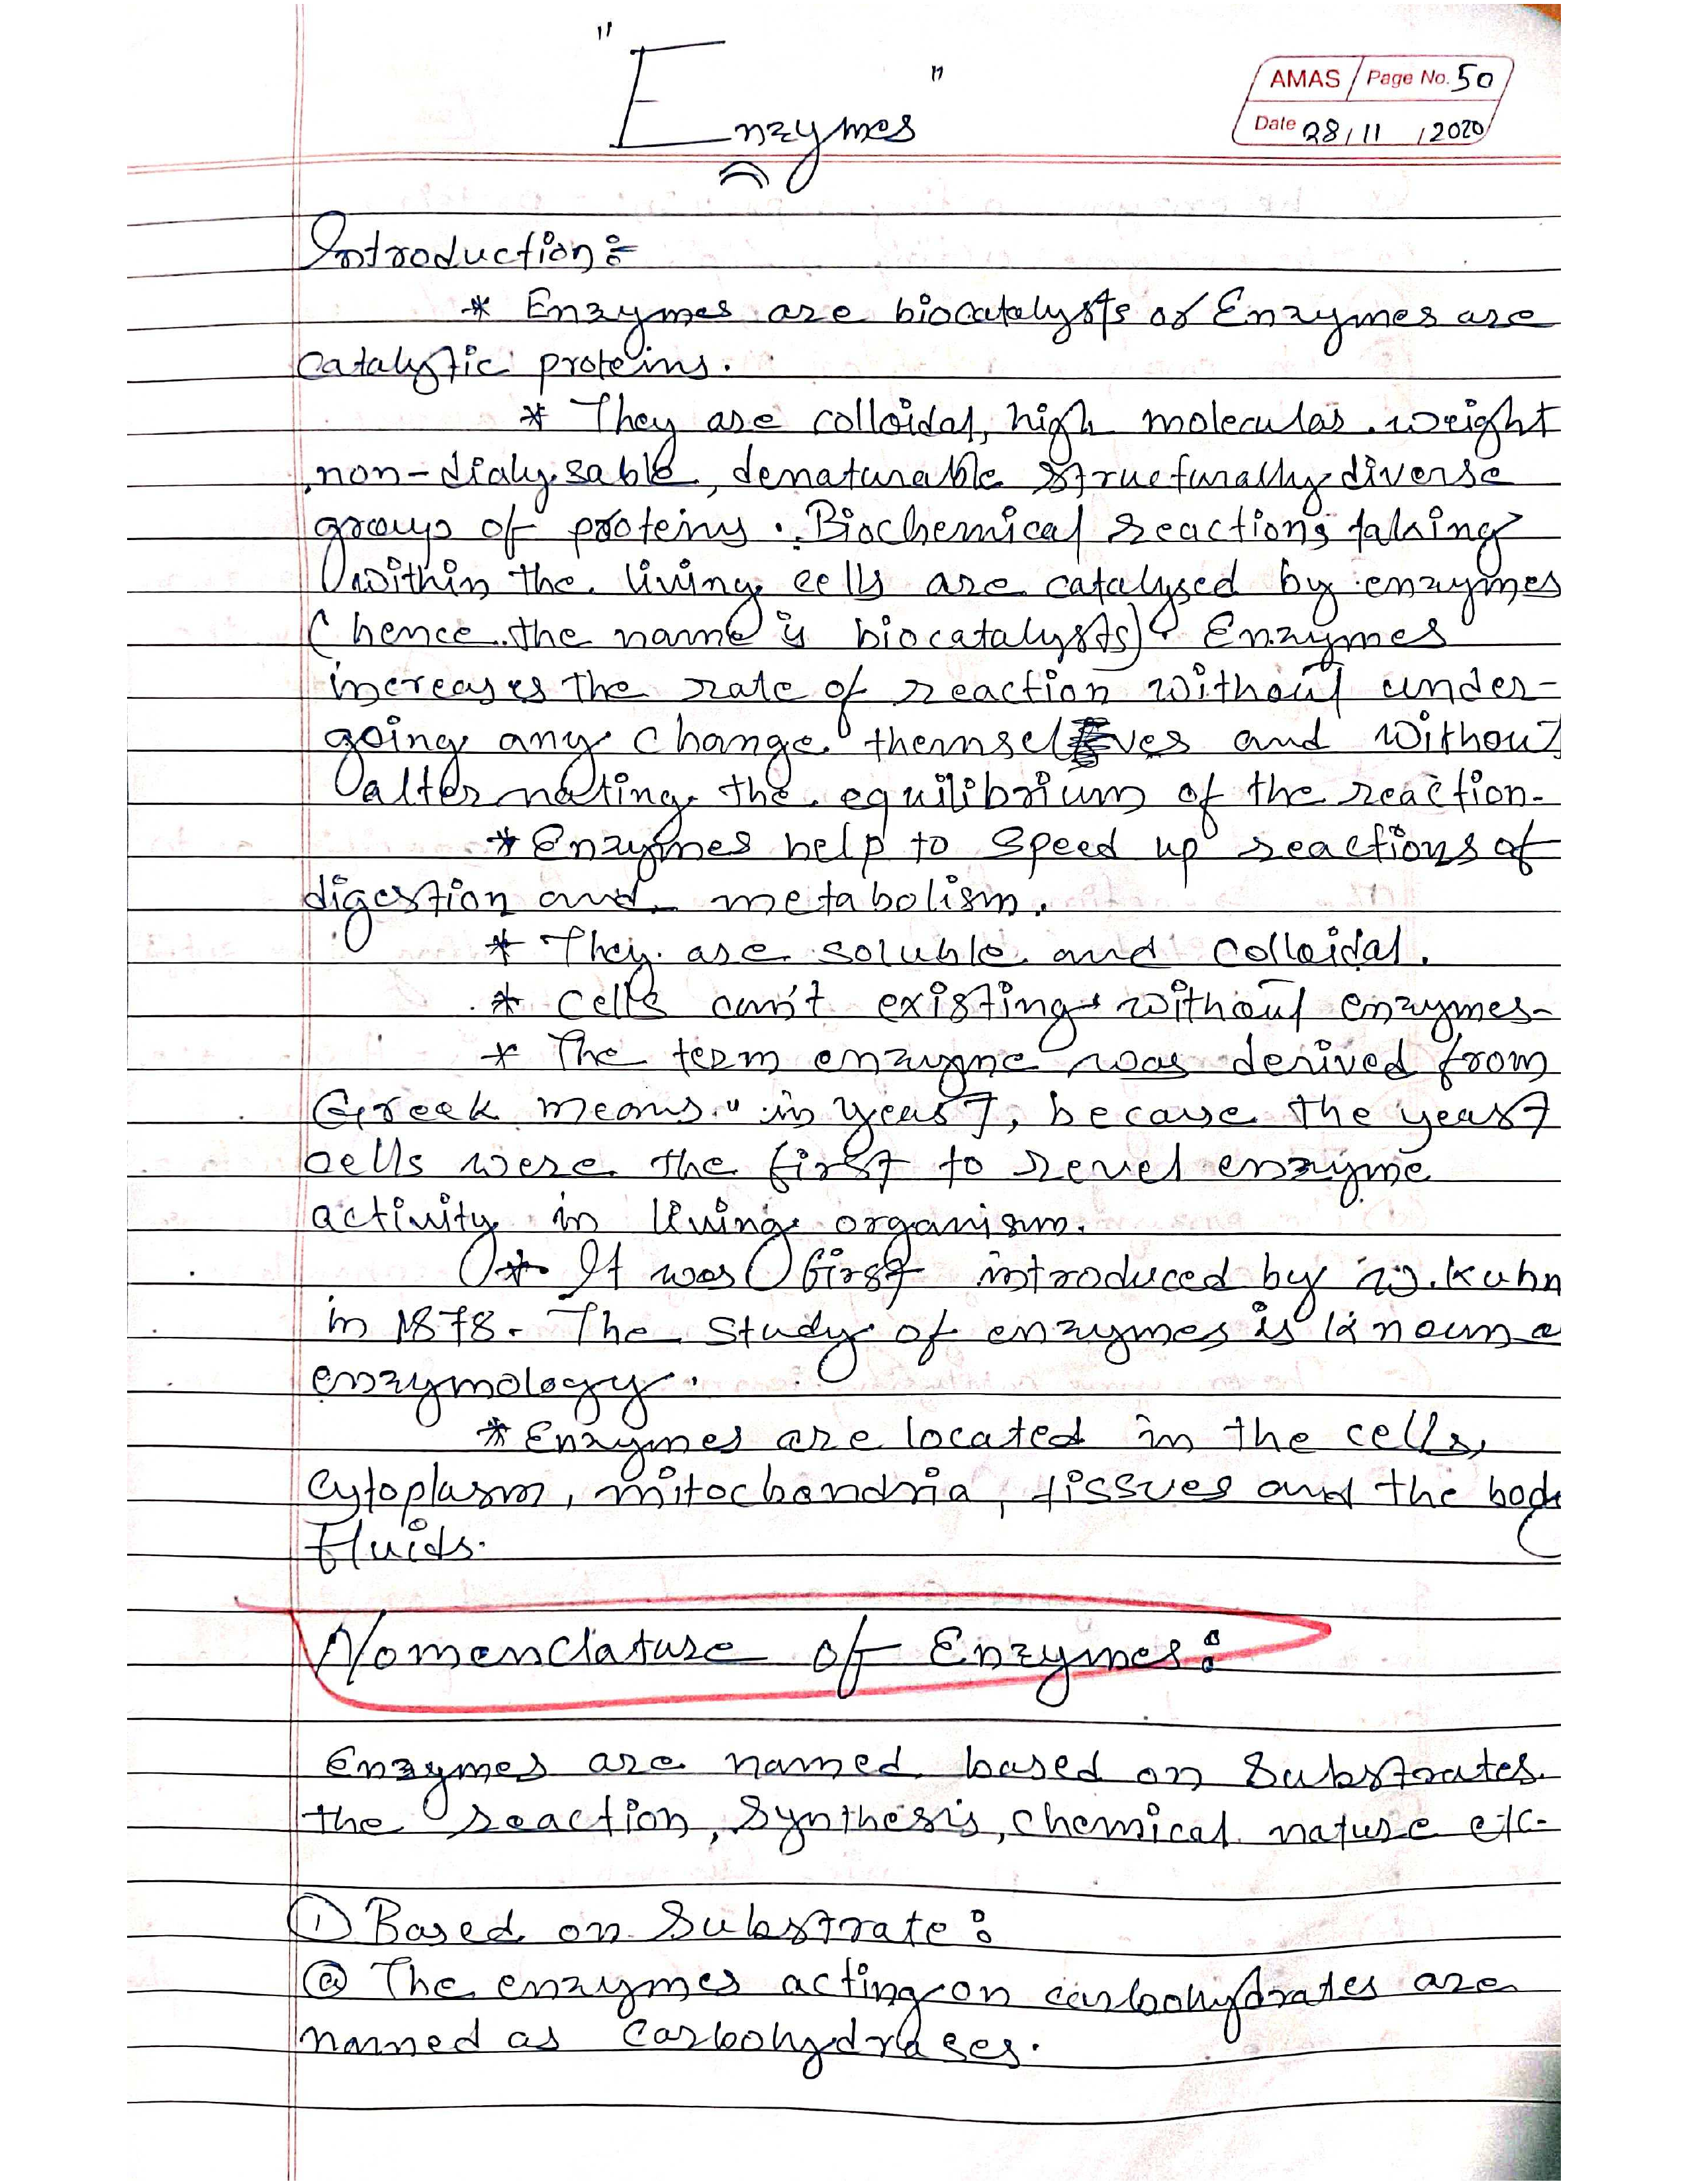 "Enzymes"
AMAS Page No. 50
Date 28/11/2020
Introduction :-
* Enzymes are biocatalysts or Enzymes are
catalytic proteins.
* They are colloidal, high molecular weight
, non-dialysable, denaturable structurally diverse
groups of proteins. Biochemical reactions taking
within the living cells are catalysed by enzymes
(hence the name is biocatalysts). Enzymes
increases the rate of reaction without under-
going any change themselves and without
alternating the equilibrium of the reaction.
* Enzymes help to speed up reactions of
digestion and metabolism.
* They are soluble and colloidal.
* Cells can't existing without enzymes.
* The term enzyme was derived from
Greek means " in yeast, because the yeast
cells were the first to revel enzyme
activity in living organism.
* It was first introduced by W. Kuhn
in 1878. The study of enzymes is known a
enzymology.
* Enzymes are located in the cells,
cytoplasm, mitochondria, tissues and the body
fluids.
Nomenclature of Enzymes:
Enzymes are named based on Substrates
the reaction, synthesis, chemical nature etc.
① Based on Substrate :
ⓐ The enzymes acting on carbohydrates are
named as Carbohydrases.